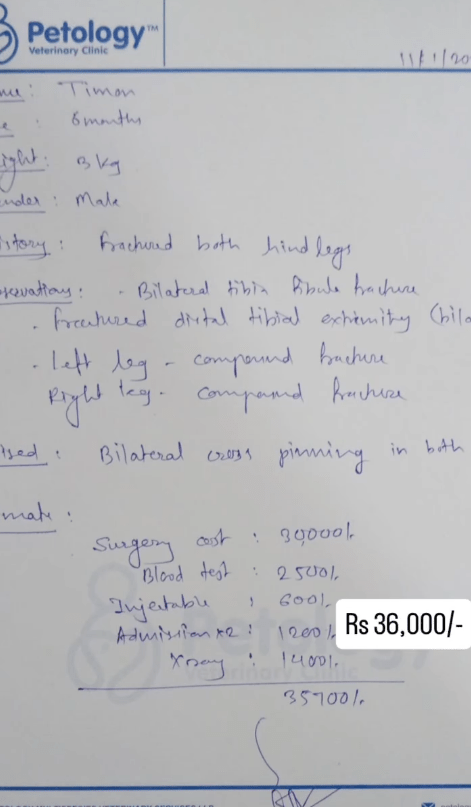 Petology™
Veterinary Clinic
11/1/20
me : Timon
e : 6 months
ight : 3 kg
nder : Male
istory : fractured both hind legs
servations : · Bilateral tibia fibula fracture
· fractured distal tibial extrimity (bila
· Left leg - compound fracture
Right leg - compound fracture
ised : Bilateral cross pinning in both
mate :
Surgery cost : 30,000/-
Blood test : 2500/-
Injectable : 600/-
Admission x2 : 1200/-
Rs 36,000/-
Xray : 1400/-
35700/-
Petology
Veterinary Clinic